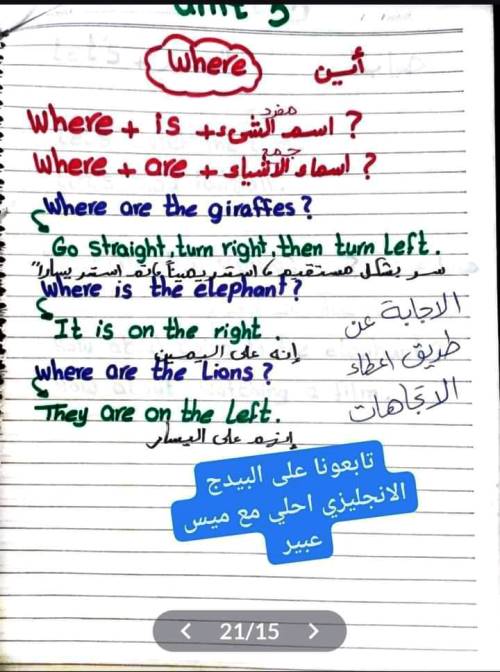 Unit 5
Where أين
Where + is + اسم الشيء مفرد ?
Where + are + اسماء الاشياء جمع ?
Where are the giraffes?
Go straight, turn right, then turn left.
سر بشكل مستقيم ، استدر يميناً ، ثم استدر يساراً
Where is the elephant?
It is on the right.
إنه على اليمين
Where are the Lions?
They are on the left.
إنهم على اليسار
الاجابة عن
طريق اعطاء
الاتجاهات
تابعونا على البيدج
الانجليزي احلي مع ميس
عبير
21/15